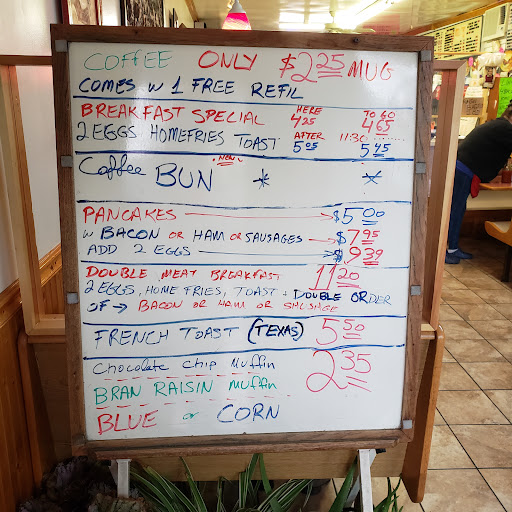 COFFEE ONLY $2.25 MUG
COMES W 1 FREE REFIL
BREAKFAST SPECIAL HERE 4.25 TO GO 4.65
2 EGGS HOMEFRIES TOAST AFTER 5.05 11:30 5.45
Coffee BUN NEW * *
PANCAKES $5.00
W BACON OR HAM OR SAUSAGES $7.95
ADD 2 EGGS $9.39
DOUBLE MEAT BREAKFAST 11.20
2 EGGS, HOME FRIES, TOAST + DOUBLE ORDER
OF → BACON OR HAM OR SAUSAGE
FRENCH TOAST (TEXAS) 5.50
Chocolate Chip Muffin 2.35
BRAN RAISIN MUFFIN
BLUE or CORN